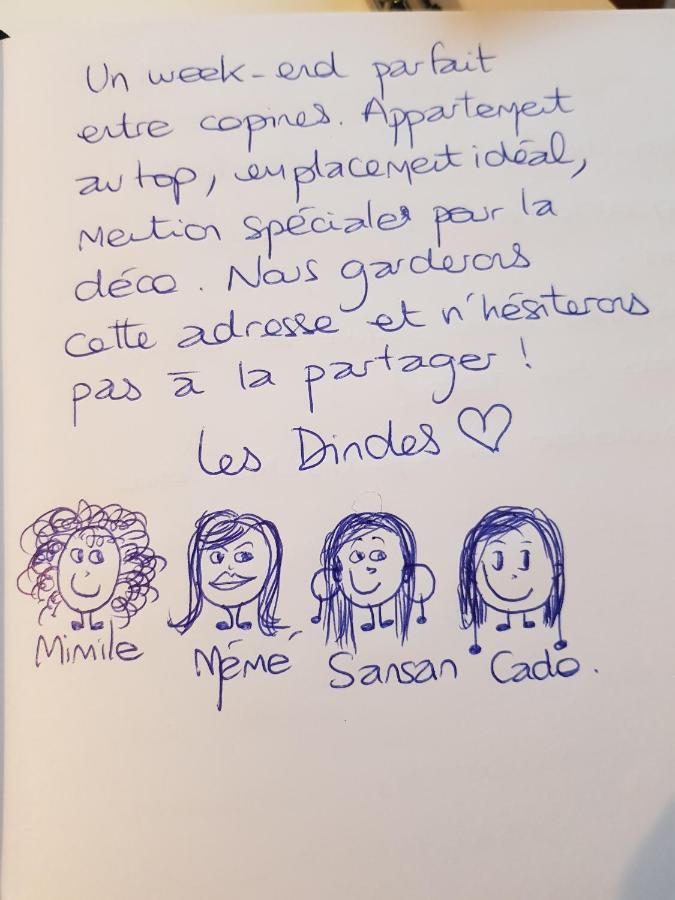 Un week-end parfait
entre copines. Appartement
au top, emplacement idéal,
Mention spéciales pour la
déco. Nous garderons
cette adresse et n'hésiterons
pas à la partager !
Les Dindes ♡
Mimile Mémé Sansan Cado.